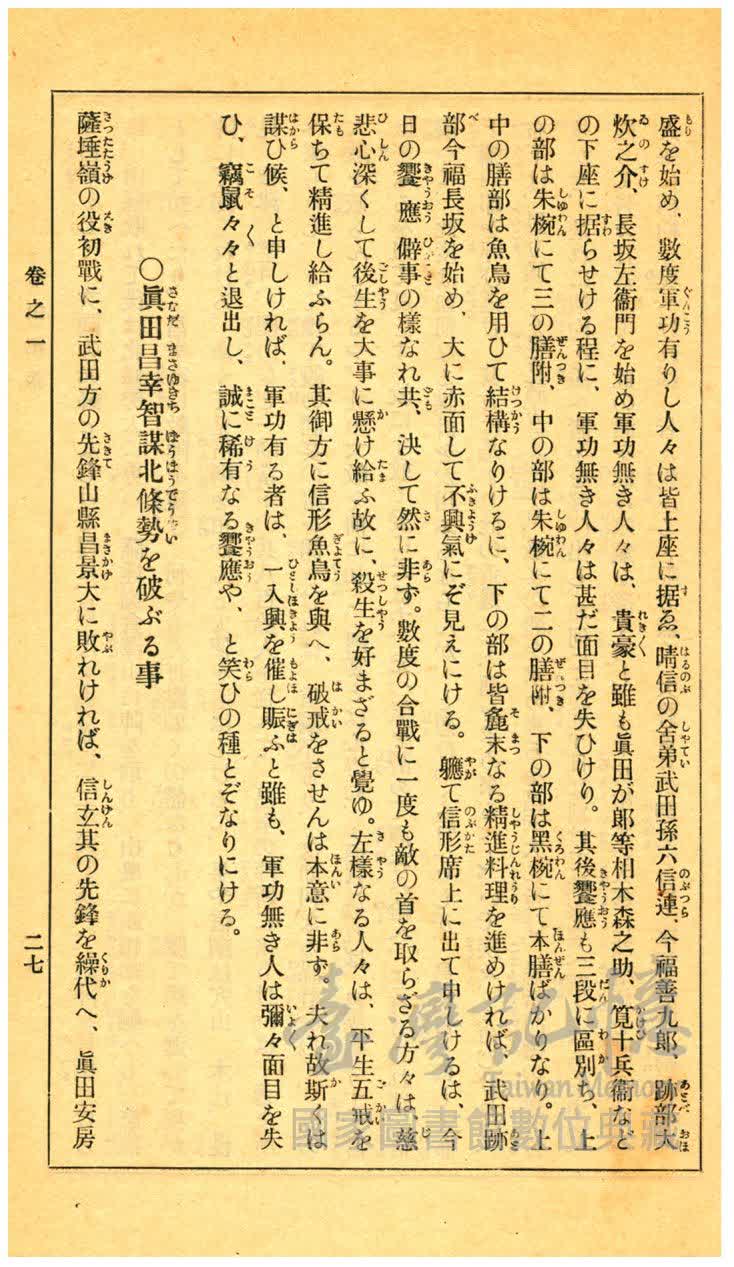 盛を始め、數度軍功有りし人々は皆上座に据ゑ、晴信の舍弟武田孫六信連、今福善九郎、跡部大
炊之介、長坂左衞門を始め軍功無き人々は、貴豪と雖も眞田が郎等相木森之助、筧十兵衞など
の下座に据らせける程に、軍功無き人々は甚だ面目を失ひけり。其後饗應も三段に區別ち、上
の部は朱椀にて三の膳附、中の部は朱椀にて二の膳附、下の部は黑椀にて本膳ばかりなり。上
中の膳部は魚鳥を用ひて結構なりけるに、下の部は皆麁末なる精進料理を進めければ、武田跡
部今福長坂を始め、大に赤面して不興氣にぞ見えにける。軈て信形席上に出て申しけるは、今
日の饗應僻事の樣なれ共、決して然に非ず。數度の合戰に一度も敵の首を取らざる方々は慈
悲心深くして後生を大事に懸け給ふ故に、殺生を好まざると覺ゆ。左樣なる人々は、平生五戒を
保ちて精進し給ふらん。其御方に信形魚鳥を與へ、破戒をさせんは本意に非ず。夫れ故斯くは
謀ひ候、と申しければ、軍功有る者は、一入興を催し賑ふと雖も、軍功無き人は彌々面目を失
ひ、竊鼠々々と退出し、誠に稀有なる饗應や、と笑ひの種とぞなりにける。
〇眞田昌幸智謀北條勢を破ぶる事
薩埵嶺の役初戰に、武田方の先鋒山縣昌景大に敗れければ、信玄其の先鋒を繰代へ、眞田安房
卷之一
二七
臺灣記憶
Taiwan Memory
國家圖書館數位典藏